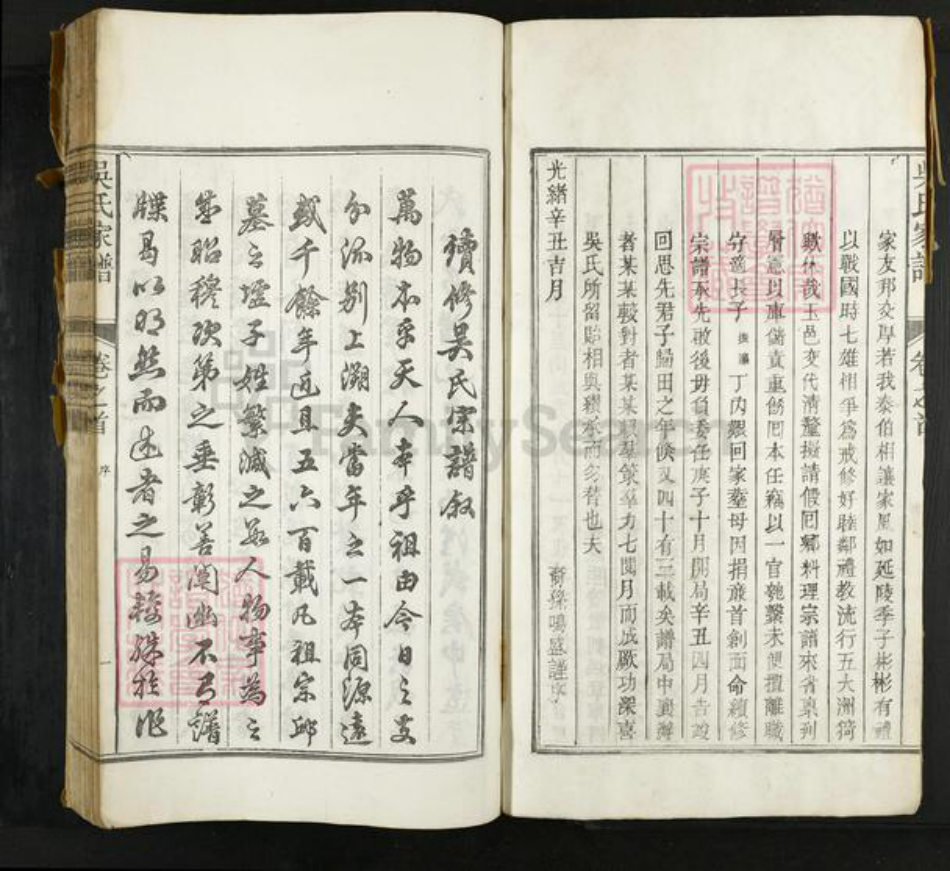 家友邦交與若我泰伯相讓家風如延陵季子彬彬有禮
以戰國時七雄相爭為戒修好睦鄰禮教流行五大洲猗
歟休哉玉邑交代清釐擬請假回鄉料理宗譜來省稟到
層憲以庫儲責重飭回本任竊以一官匏繫未便擅離職
守適長子 丁內艱回家塟母因捐廉首創面命續修
宗譜承先啟後毋負委任庚子十月開局辛丑四月告竣
回思先君子歸田之年倐又四十有三載矣譜局中襄辦
者某某較對者某某羣策羣力七閱月而成厥功深喜
吳氏所留貽相與積承而勿替也夫
裔孫鳴盛謹序
光緒辛丑吉月
吳氏家譜
卷之首
續修吳氏宗譜叙
萬物本乎天人本乎祖由今日之支
分流別上溯夫當年之一本同源遠
或千餘年近且五六百載凡祖宗邱
墓之墟子姓繁滅之數人物事為之
昭穆次第之垂彰善闡幽不有譜
牒曷以明然而述者之易較殊於作
吳氏家譜
卷之首
序
一
FamilySearch